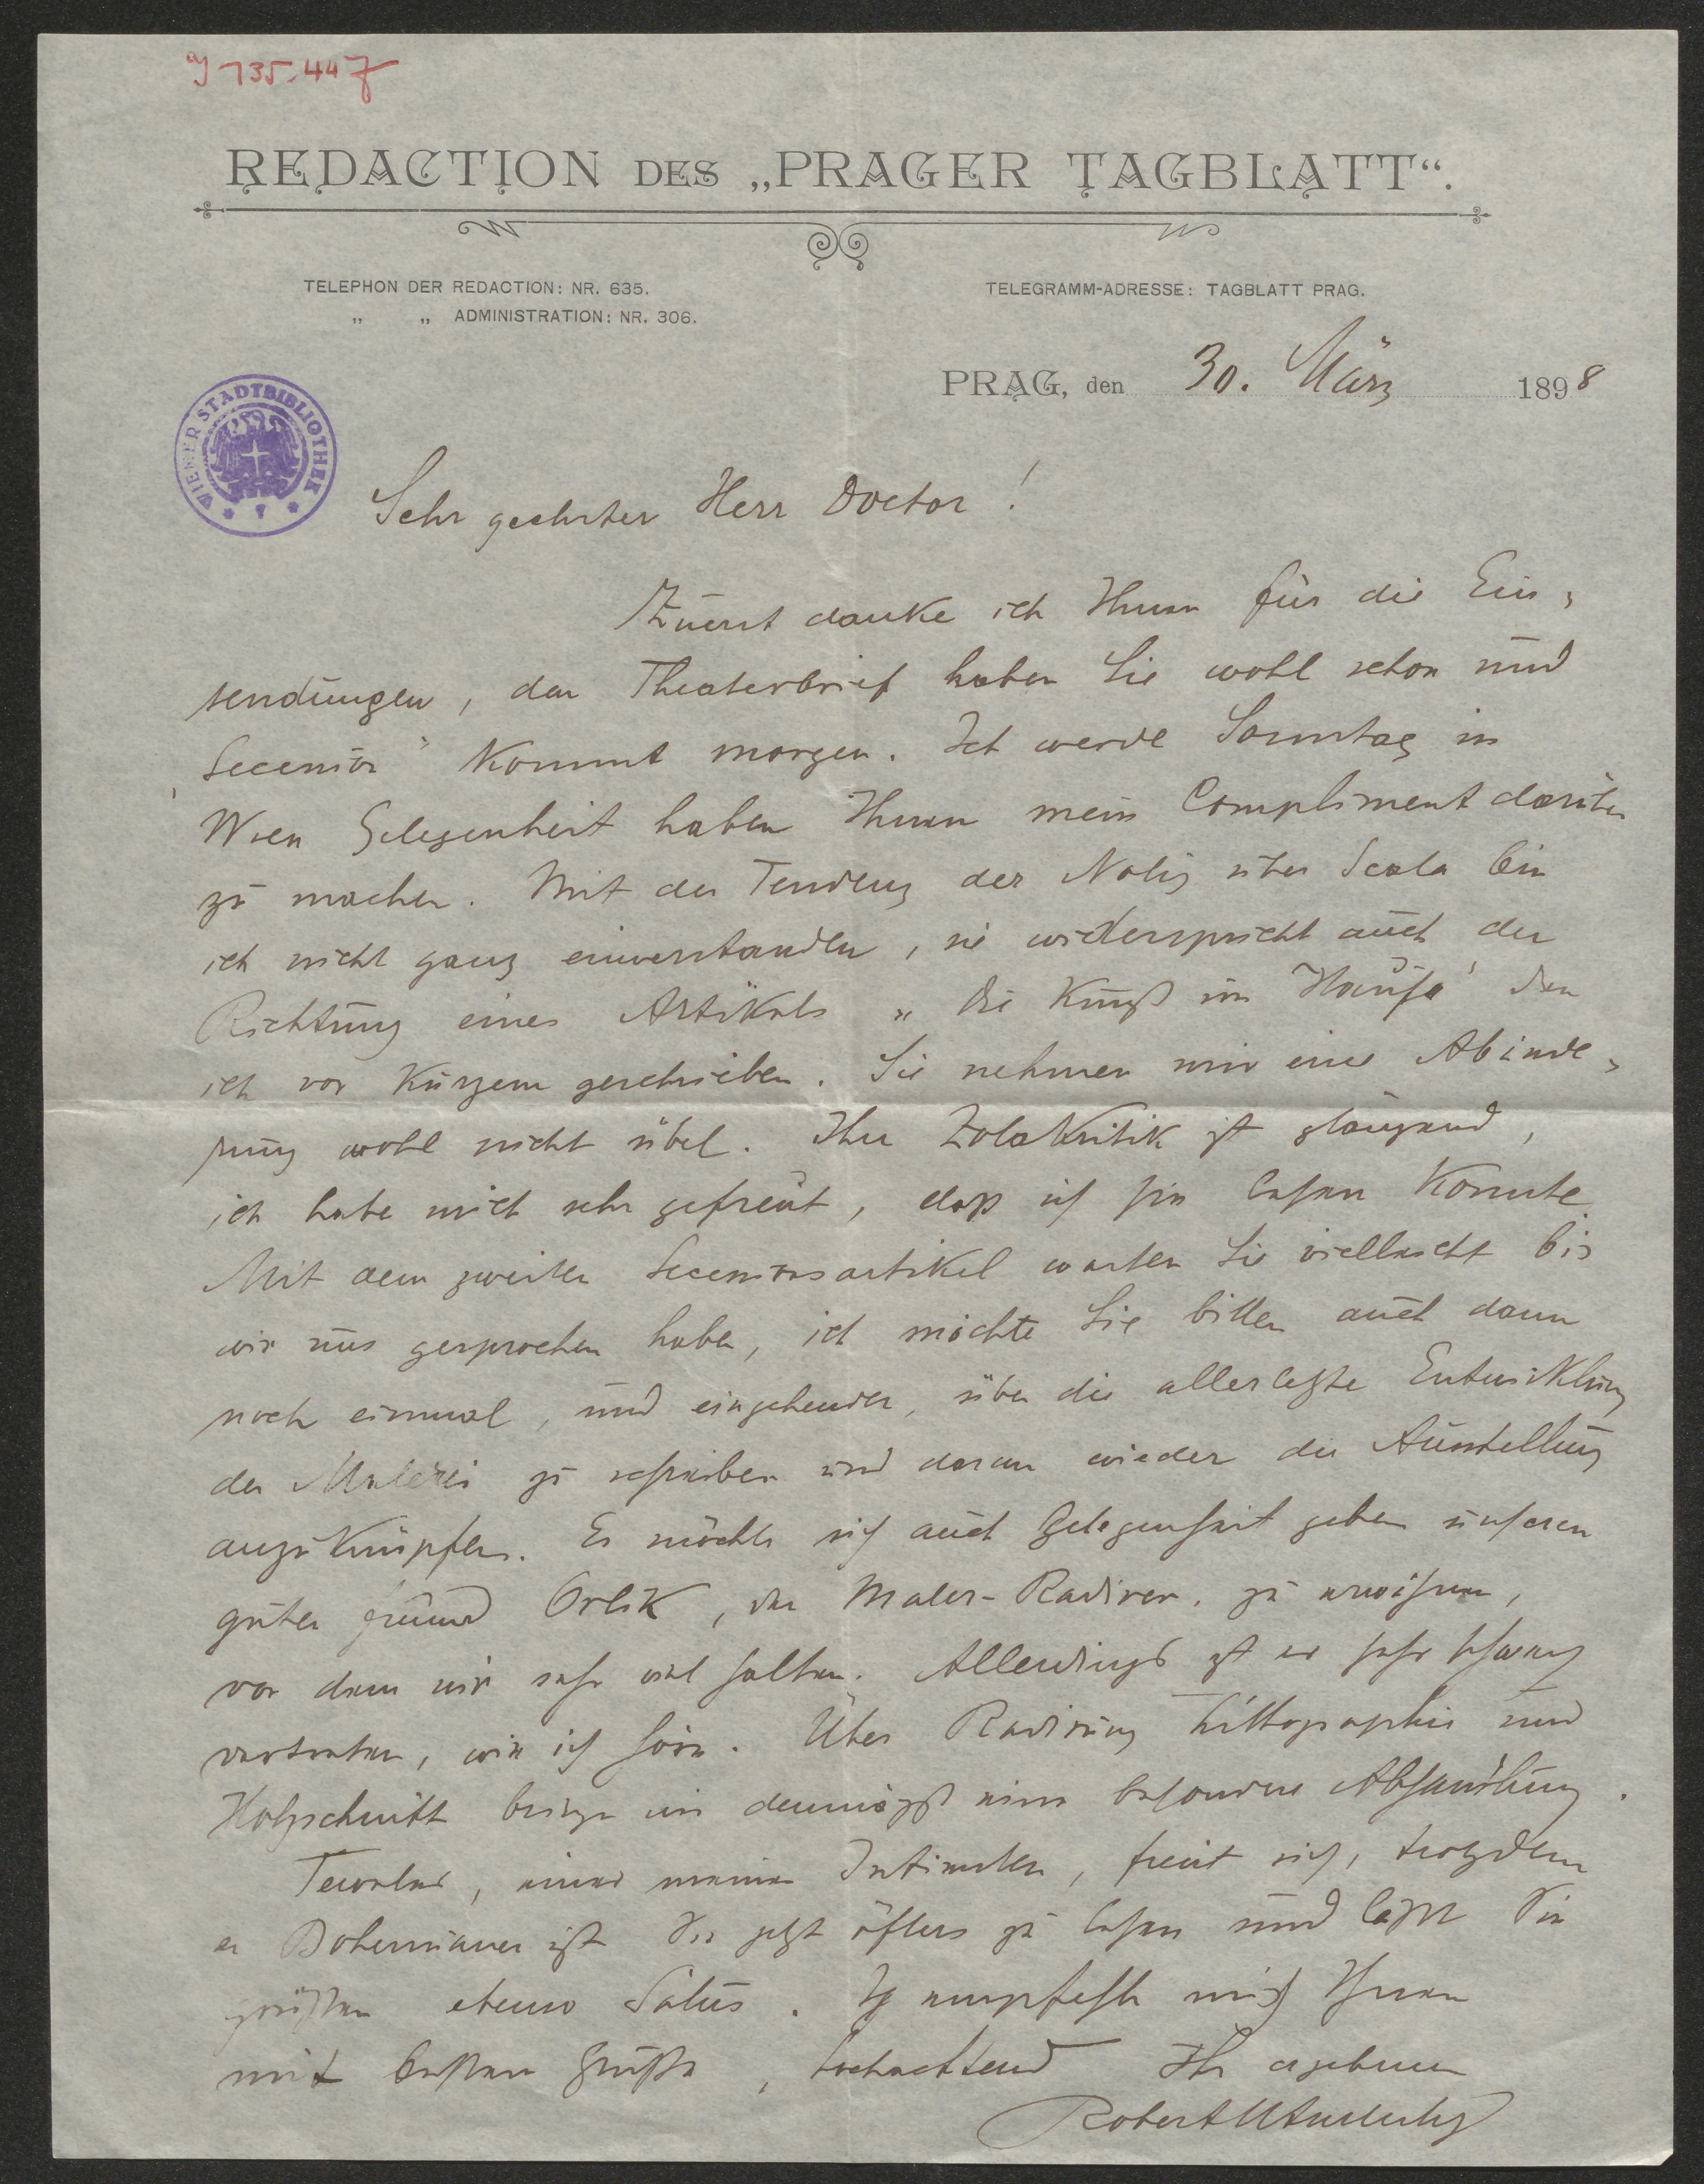 IJ 135.447
REDACTION DES „PRAGER TAGBLATT“.
TELEPHON DER REDACTION: NR. 635.
„ „ ADMINISTRATION: NR. 306.
TELEGRAMM-ADRESSE: TAGBLATT PRAG.
PRAG, den 30. März 1898
WIENER STADTBIBLIOTHEK
Sehr geehrter Herr Doctor!
Zuerst danke ich Ihnen für die Ein-
sendungen, den Theaterbrief haben Sie wohl schon und
„Secession“ kommt morgen. Ich werde Sonntag in
Wien Gelegenheit haben Ihnen mein Compliment darüber
zu machen. Mit der Tendenz der Notiz über Scala bin
ich nicht ganz einverstanden, sie widerspricht auch der
Richtung eines Artikels „Die Kunst im Hause“ den
ich vor Kurzem geschrieben. Sie nehmen mir eine Abände-
rung wohl nicht übel. Ihre Zolakritik ist glänzend,
ich habe mich sehr gefreut, dass ich sie lesen konnte.
Mit dem zweiten Secessionsartikel warten Sie vielleicht bis
wir uns gesprochen haben, ich möchte Sie bitten auch dann
noch einmal, und eingehender, über die allerletzte Entwicklung
der Malerei zu schreiben und daran wieder die Ausstellung
anzuknüpfen. Es möchte sich auch Gelegenheit geben unseren
guten Freund Orlik, den Maler-Radirer, zu erweisen,
von dem wir sehr viel halten. Allerdings ist er sehr schwach
vertreten, wie ich höre. Über Radirung Lithographie und
Holzschnitt bringe ich demnächst eine besondere Abhandlung.
Teweles, einer meiner Intimsten, freut sich, trotzdem
er Bohemianer ist Sie jetzt öfters zu lesen und lässt Sie
grüßen ebenso Salus. Ich empfehle mich Ihnen
mit bestem Gruße, hochachtend Ihr ergebener
Robert